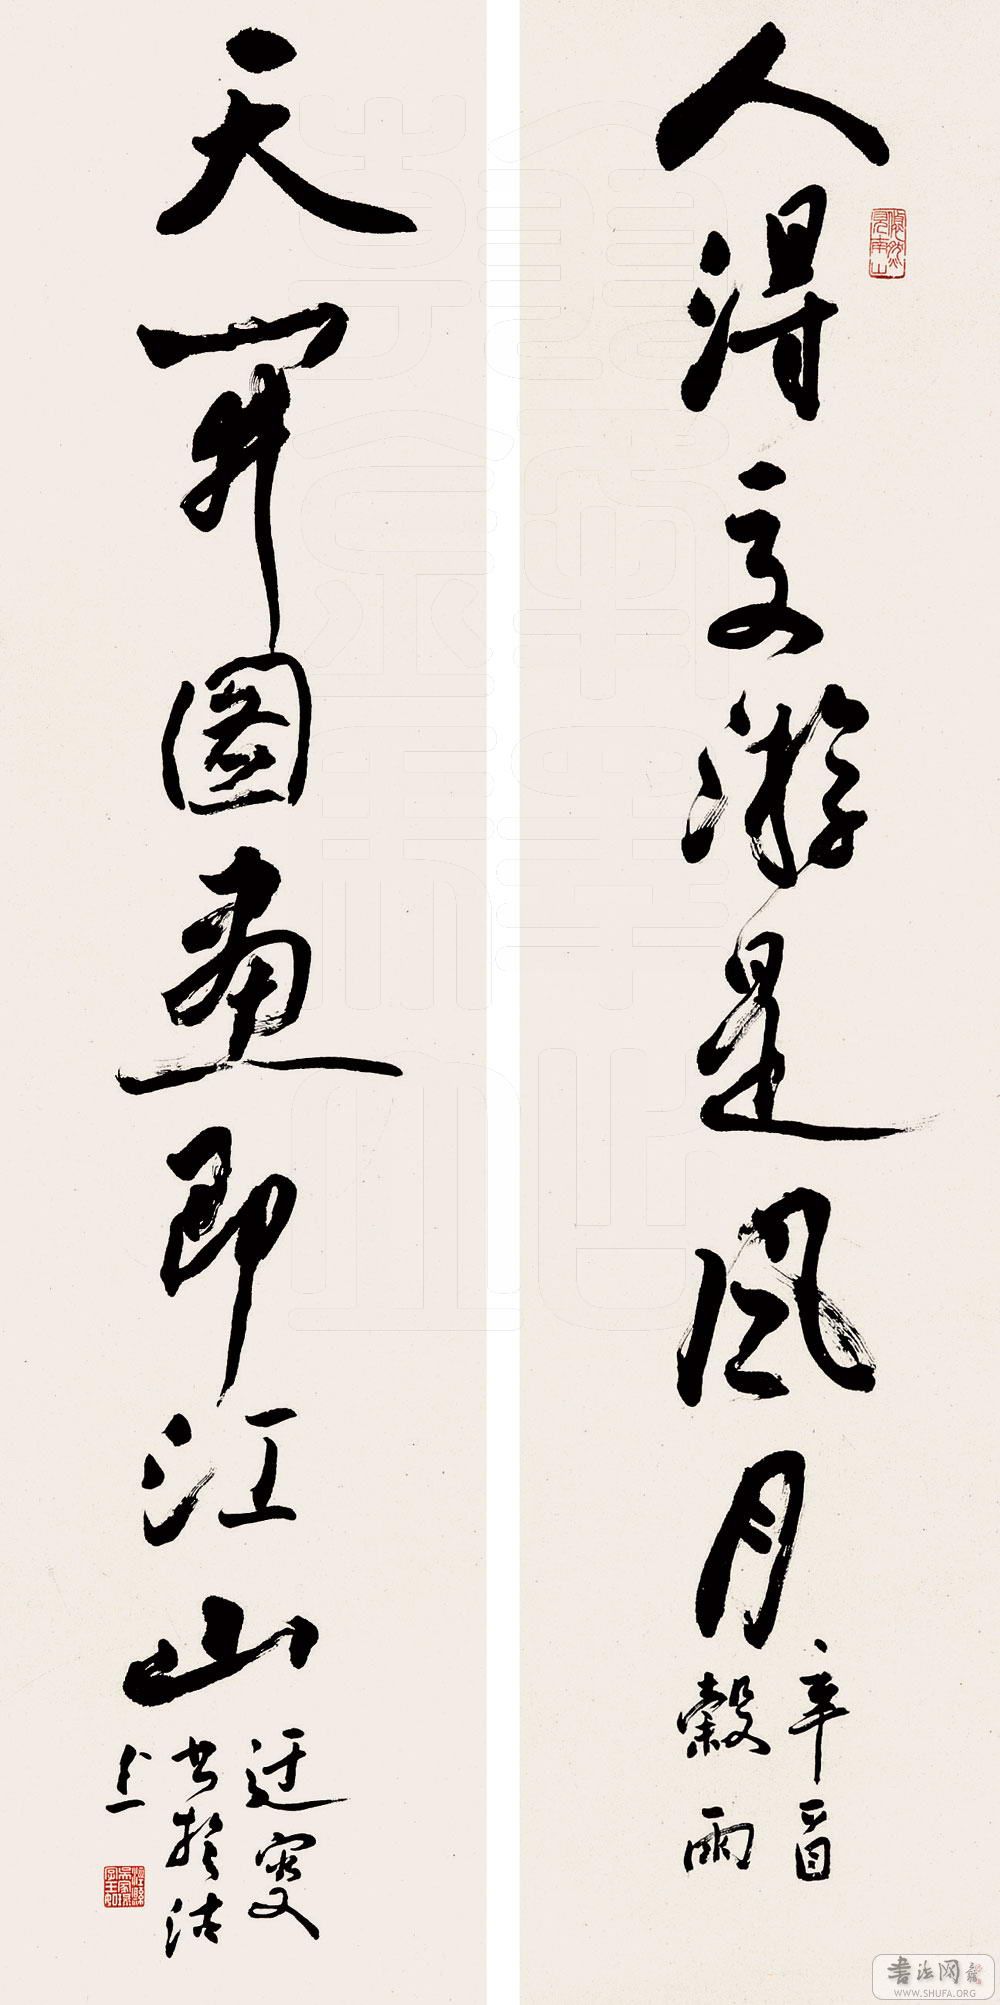 人得交游是风月
辛酉
穀雨
天开图画即江山
迂叟
书於沽
上
书法网
WWW.SHUFA.ORG